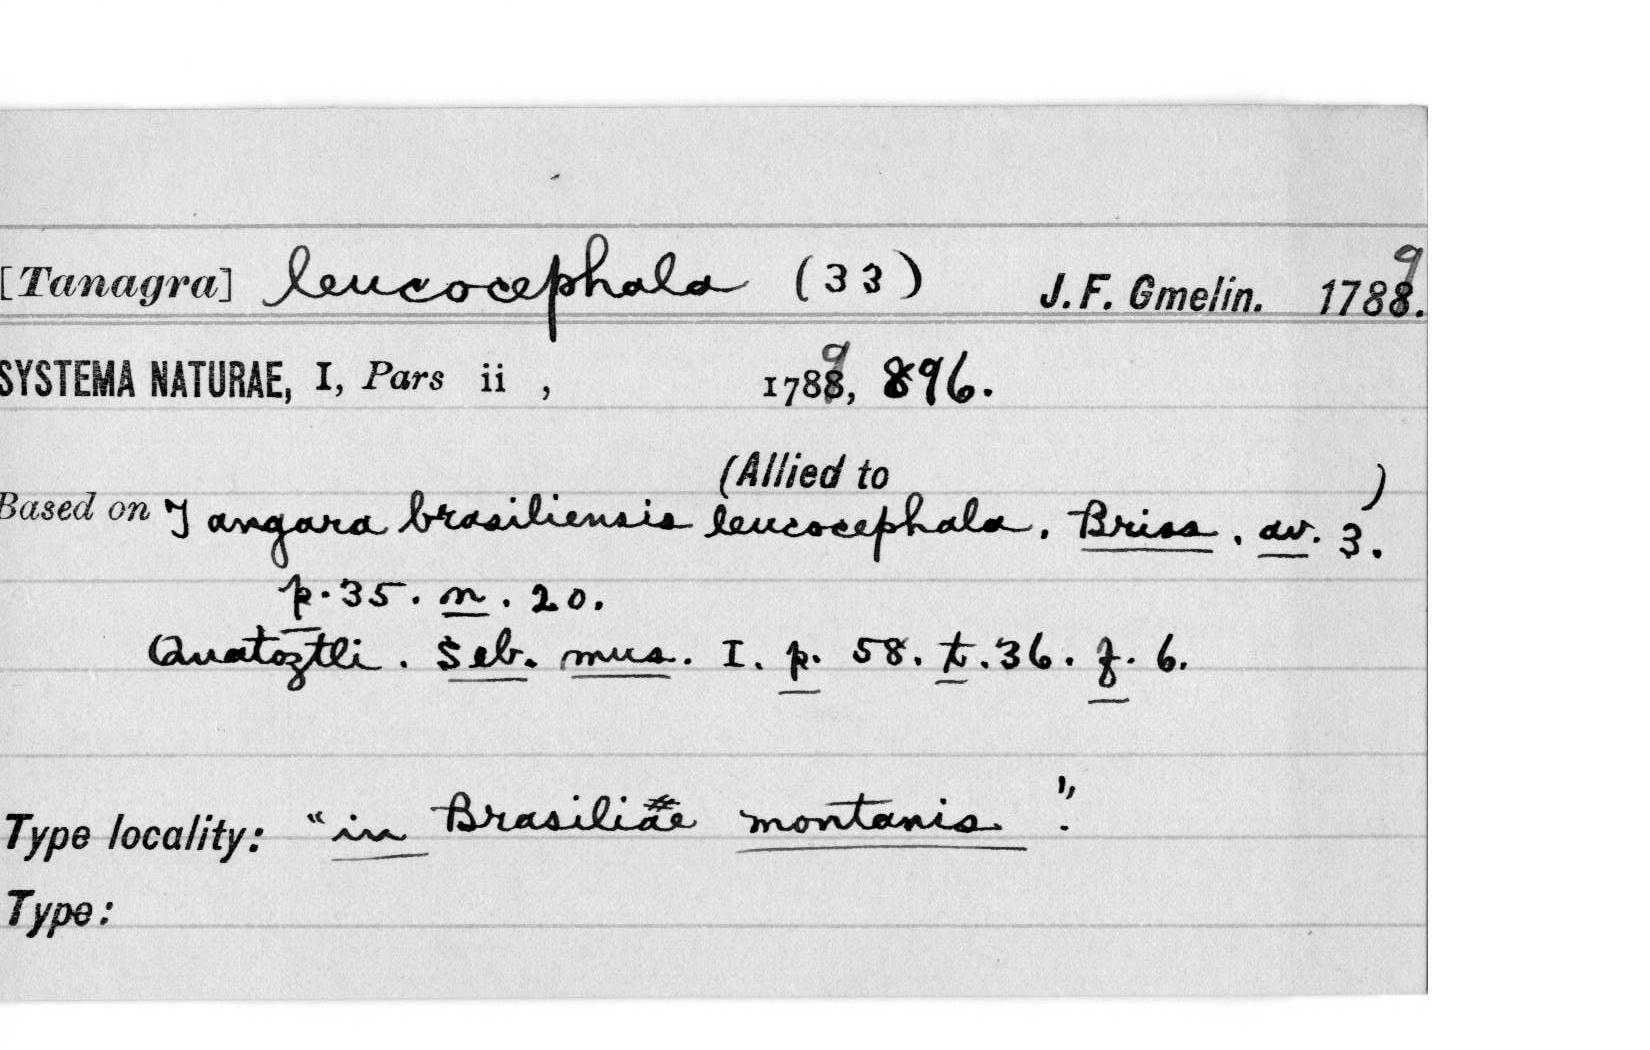 [Tanagra] leucocephala (33) J. F. Gmelin. 1789.
SYSTEMA NATURAE, I, Pars ii , 1789, 896.
(Allied to )
Based on Tangara brasiliensis leucocephala. Briss. av. 3.
p. 35. n. 20.
Quatoztli. Seb. mus. I. p. 58. t. 36. f. 6.
Type locality: "in Brasiliae montanis."
Type: